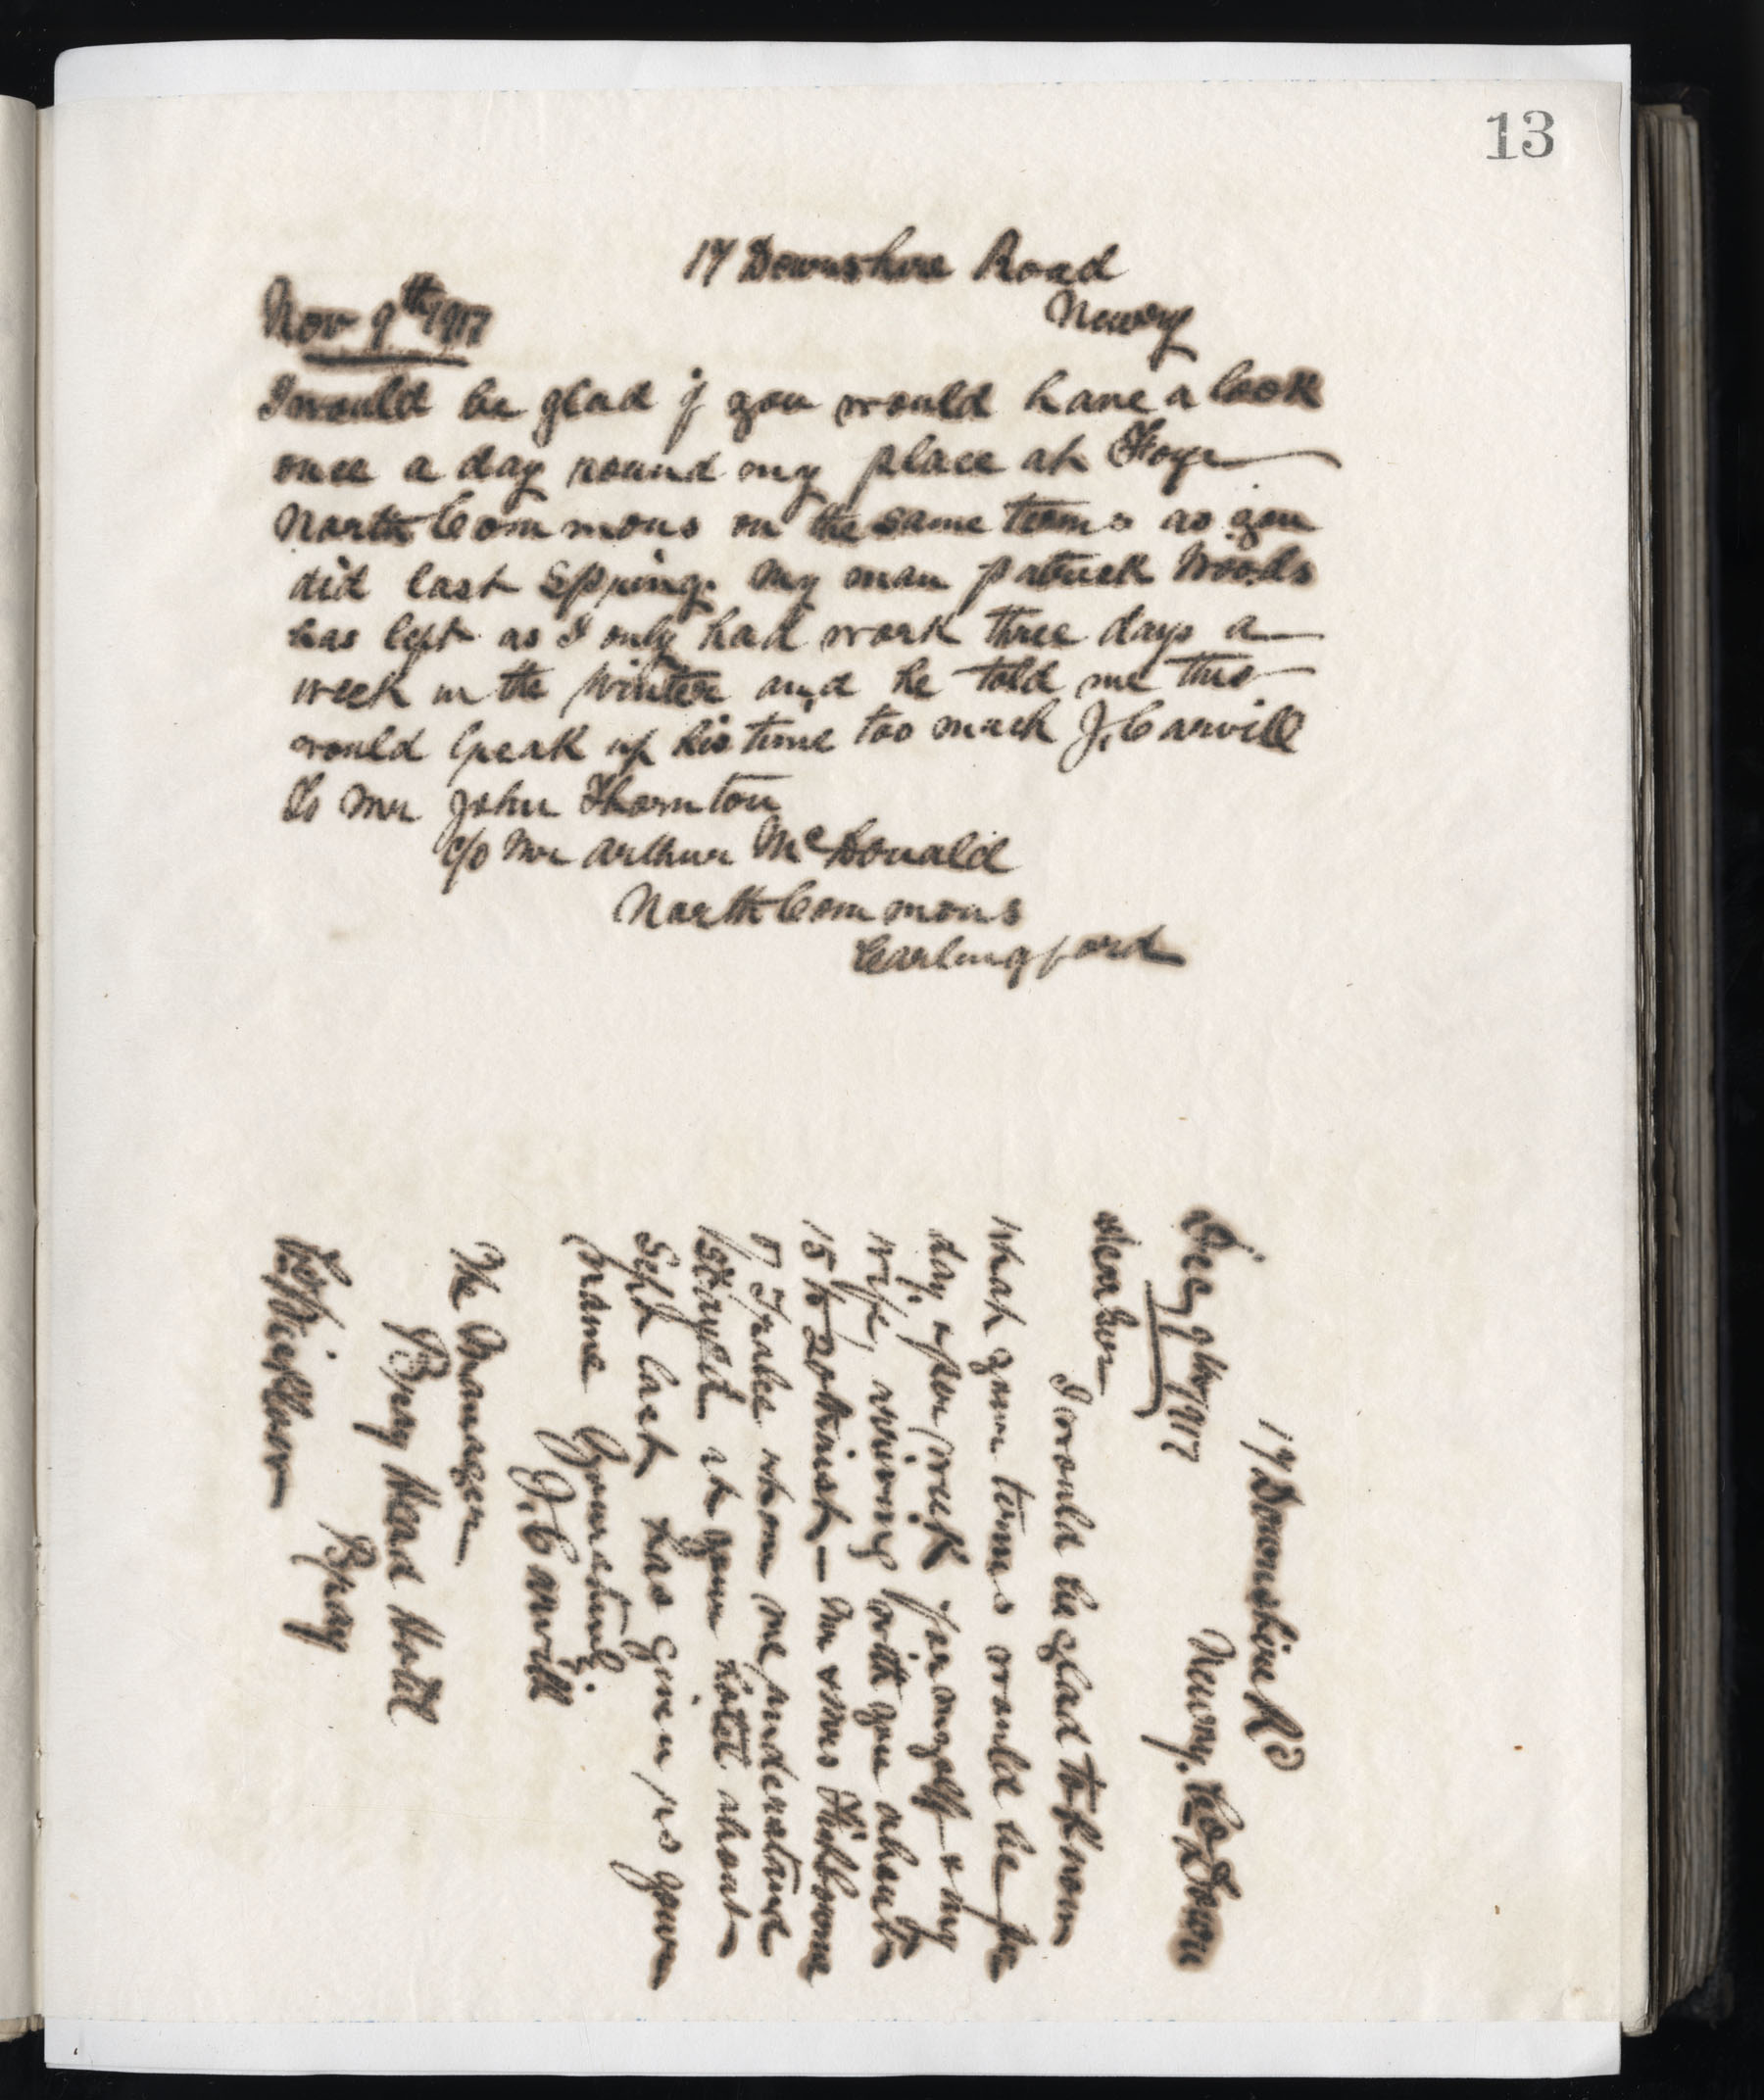 13
17 Downshire Road
Newry
Nov 9th 1917
I would be glad if you would have a look
once a day round my place at
North Commons on the same terms as you
did last Spring. My man Patrick Woods
has left as I only had work three days a
week in the Winter and he told me this
would break up his time too much J. Carvill
To Mr John Thornton
c/o Mr Arthur McDonald
North Commons
Carlingford
17 Downshire Rd
Newry. Co Down
Dec 9th 1917
Dear Sir
I would be glad to know
what your terms would be per
day & per week for myself & my
wife, arriving with you about
15 to 20th inst — Mr & Mrs
of Tralee whom we understand
stayed at your hotel about
Sept last has given us your
name Yours truly
J. Carvill
The Manager
Bray Head Hotel
Bray
Co Wicklow